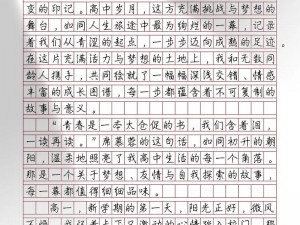 变的印记。高中岁月，这方充满挑战与梦想的
舞台，如同人生旅途中最为绚烂的一幕，记录
着我们从青涩的起点，一步步迈向成熟的足迹。
在这片充满活力与梦想的土地上，我和无数同
龄人携手，共同绘就了一幅幅深浅交错、情感
丰富的成长图谱，每一步都蕴含着不可复制的
故事与意义。
“青春是一本太仓促的书，我们含着泪，
一读再读。”席慕蓉的这句话，如同初升的朝
阳，温柔地照亮了我高中生活的每一个角落。
那是一个关于梦想、友情与自我探索的故事，
每一幕都值得细细品味。
高一，新学期的第一天，阳光正好，微风